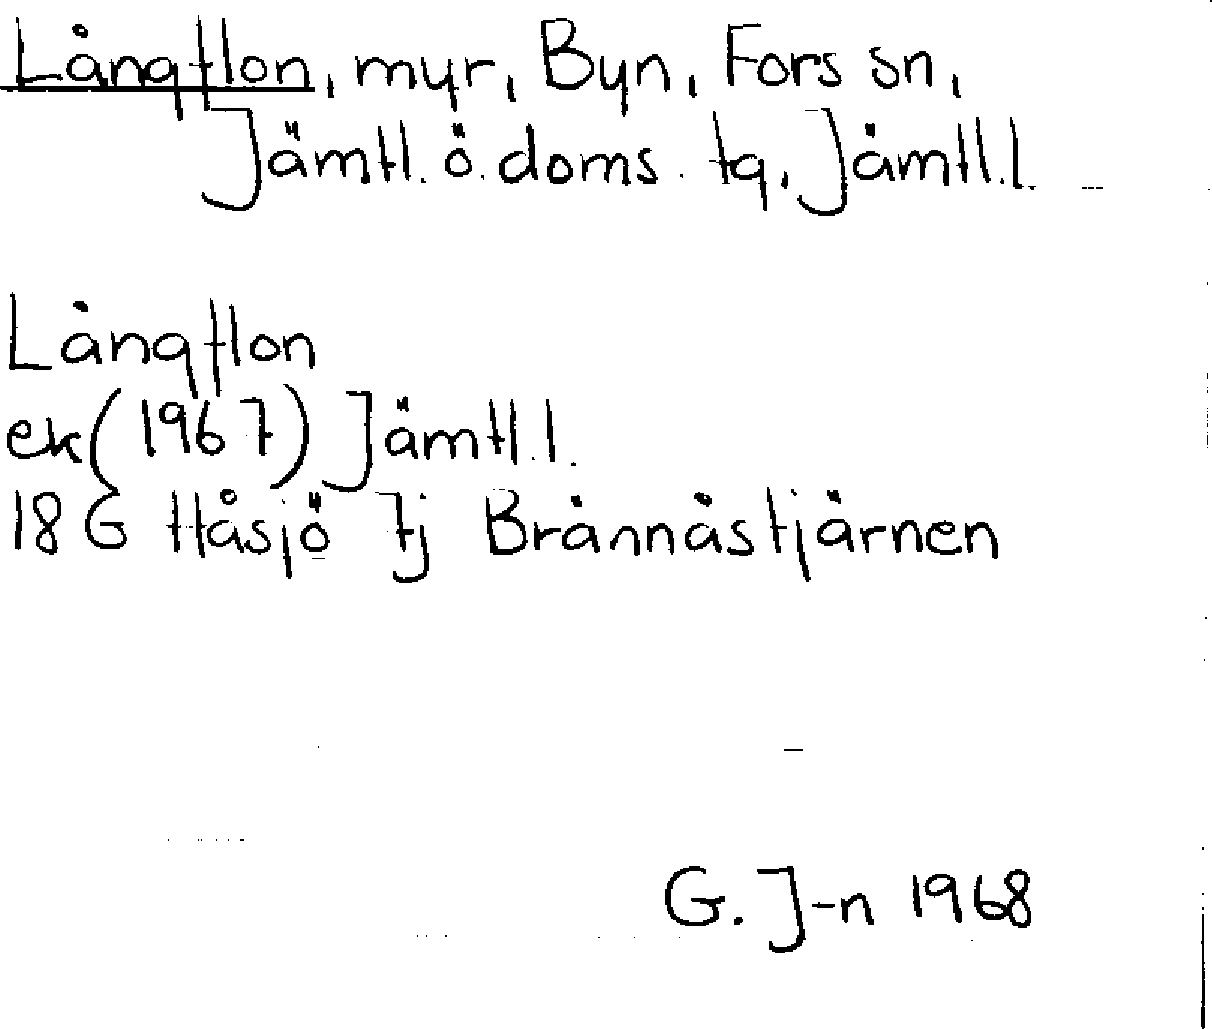 Långflon, myr, Byn, Fors sn,
Jämtl. ö. doms. tg, Jämtl. l.
Långflon
ek (1967) Jämtl. l.
18 G Håsjö 7j Brännåstjärnen
G. J-n 1968